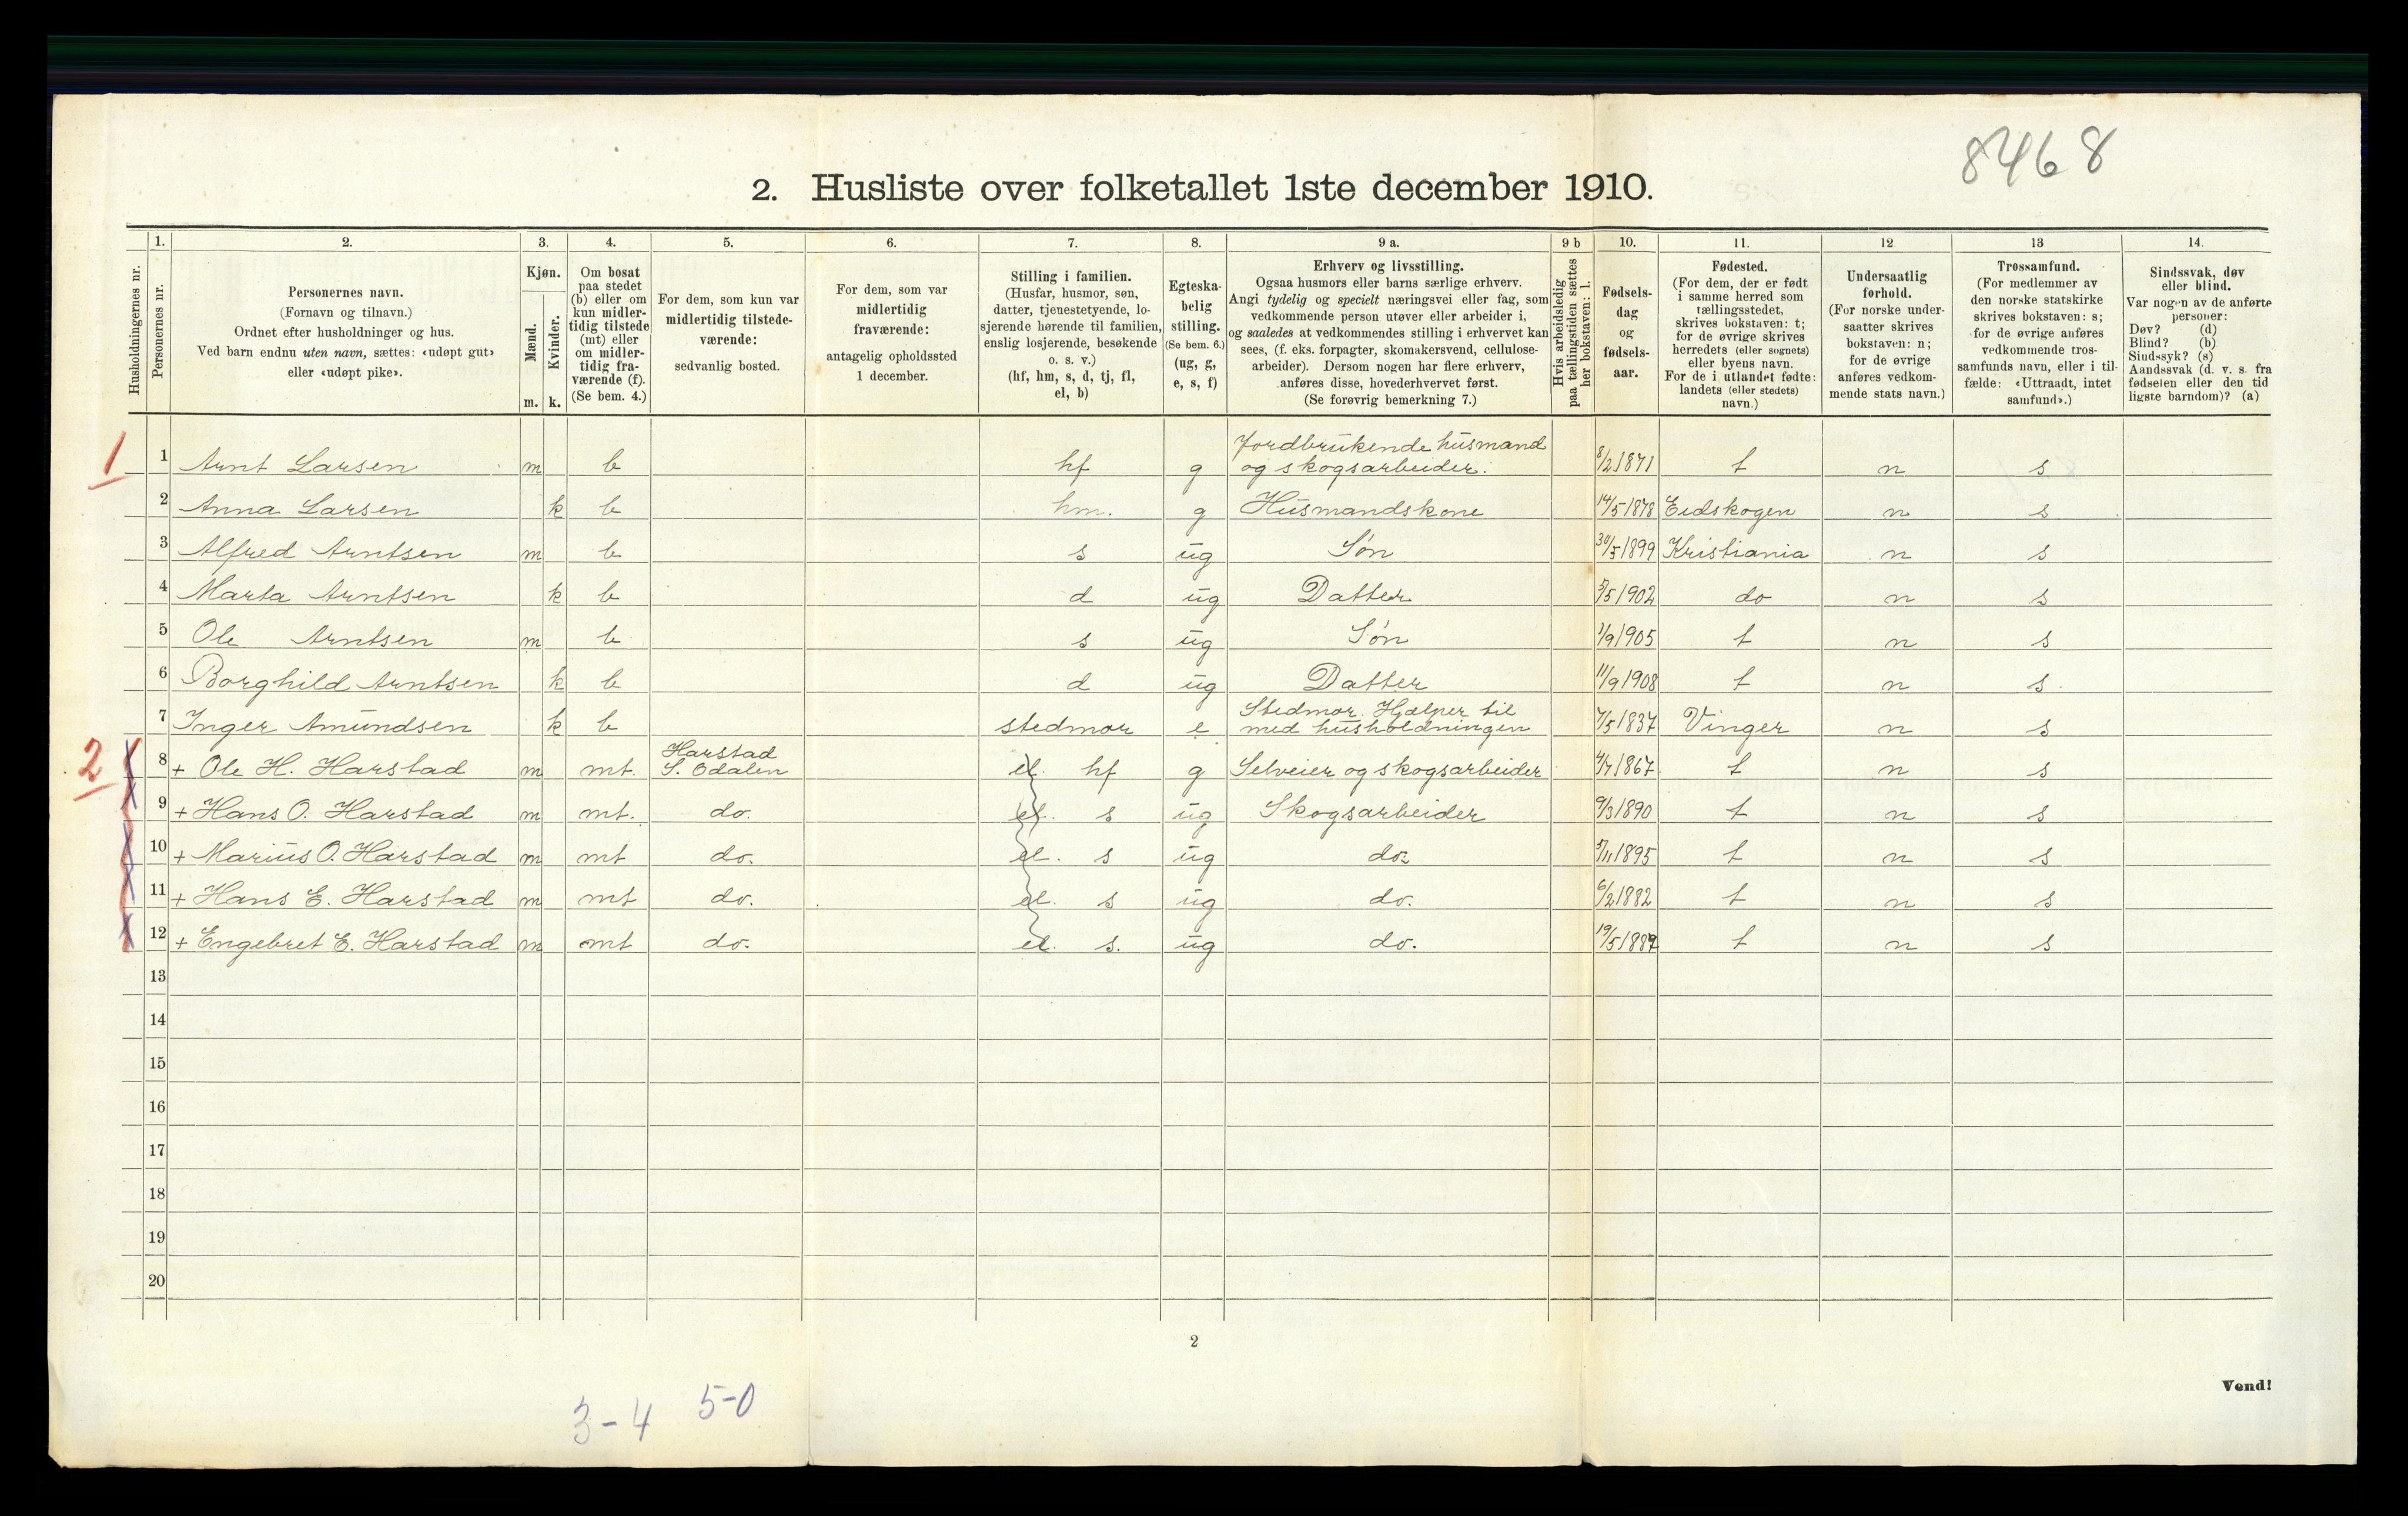 8468
2. Husliste over folketallet 1ste december 1910.
Husholdningernes nr.
1. Personernes nr.
2. Personernes navn.
(Fornavn og tilnavn.)
Ordnet efter husholdninger og hus.
Ved barn endnu uten navn, sættes: «udøpt gut»
eller «udøpt pike».
3. Kjøn.
Mænd. m.
Kvinder. k.
4. Om bosat
paa stedet
(b) eller om
kun midler-
tidig tilstede
(mt) eller
om midler-
tidig fra-
værende (f).
(Se bem. 4.)
5. For dem, som kun var
midlertidig tilstede-
værende:
sedvanlig bosted.
6. For dem, som var
midlertidig
fraværende:
antagelig opholdssted
1 december.
7. Stilling i familien.
(Husfar, husmor, søn,
datter, tjenestetyende, lo-
sjerende hørende til familien,
enslig losjerende, besøkende
o. s. v.)
(hf, hm, s, d, tj, fl,
el, b)
8. Egteska-
belig
stilling.
(Se bem. 6.)
(ug, g,
e, s, f)
9 a. Erhverv og livsstilling.
Ogsaa husmors eller barns særlige erhverv.
Angi tydelig og specielt næringsvei eller fag, som
vedkommende person utøver eller arbeider i,
og saaledes at vedkommendes stilling i erhvervet kan
sees, (f. eks. forpagter, skomakersvend, cellulose-
arbeider). Dersom nogen har flere erhverv,
anføres disse, hovederhvervet først.
(Se forøvrig bemerkning 7.)
9 b Hvis arbeidsledig
paa tællingstiden sættes
her bokstaven: l.
10. Fødsels-
dag
og
fødsels-
aar.
11. Fødested.
(For dem, der er født
i samme herred som
tællingsstedet,
skrives bokstaven: t;
for de øvrige skrives
herredets (eller sognets)
eller byens navn.
For de i utlandet fødte:
landets (eller stedets)
navn.)
12 Undersaatlig
forhold.
(For norske under-
saatter skrives
bokstaven: n;
for de øvrige
anføres vedkom-
mende stats navn.)
13 Trossamfund.
(For medlemmer av
den norske statskirke
skrives bokstaven: s;
for de øvrige anføres
vedkommende tros-
samfunds navn, eller i til-
fælde: «Uttraadt, intet
samfund».)
14. Sindssvak, døv
eller blind.
Var nogen av de anførte
personer:
Døv? (d)
Blind? (b)
Sindssyk? (s)
Aandssvak (d. v. s. fra
fødselen eller den tid
ligste barndom)? (a)
1 1 Arnt Larsen m b hf g Jordbrukende husmand
og skogsarbeider. 8/2 1871 t n s
2 Anna Larsen k b hm. g Husmandskone 14/5 1878 Eidskogen n s
3 Alfred Arntsen m b s ug Søn 30/5 1899 Kristiania n s
4 Marta Arntsen k b d ug Datter 5/5 1902 do n s
5 Ole Arntsen m b s ug Søn 1/9 1905 t n s
6 Borghild Arntsen k b d ug Datter 11/9 1908 t n s
7 Inger Amundsen k b stedmor e Stedmor. Hjælper til
med husholdningen 7/5 1837 Vinger n s
2 8 + Ole H. Harstad m mt. Harstad
S. Odalen el. hf g Selveier og skogsarbeider 4/7 1867 t n s
9 + Hans O. Harstad m mt. do. el. s ug Skogsarbeider 9/3 1890 t n s
10 + Marius O. Harstad m mt do. el. s ug do. 5/11 1895 t n s
11 + Hans E. Harstad m mt do. el. s ug do. 6/2 1882 t n s
12 + Engebret E. Harstad m mt do. el. s. ug do. 19/5 1887 t n s
13
14
15
16
17
18
19
20
2
Vend!
3-4 5-0